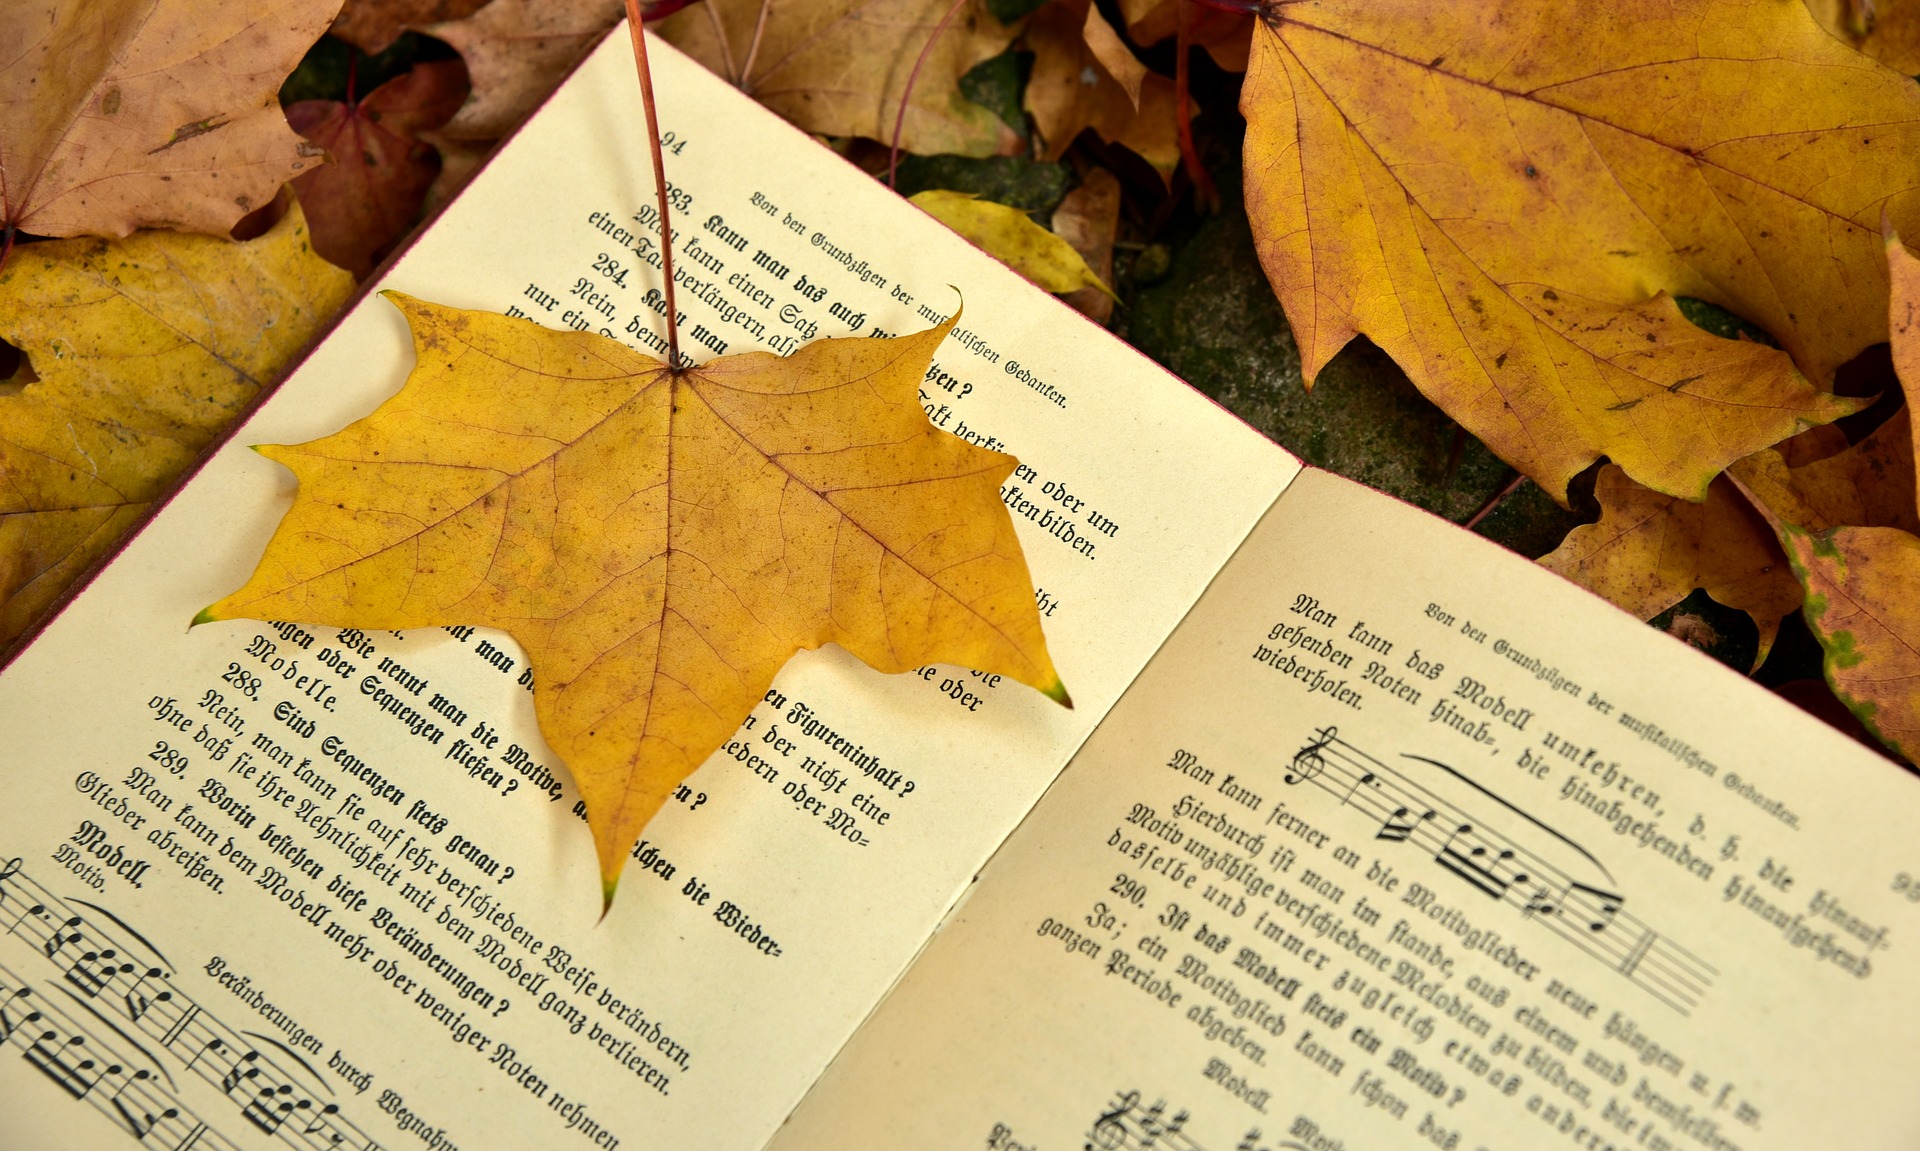 94
Von den Grundzügen der musikalischen Gedanken.
283. Kann man das auch mi tzen?
Man kann einen Satz Takt verkü en oder um
einen Takt verlängern, als akten bilden.
284. Kann man
Nein, denn ibt
nur ein
die
ne oder
nt man di en Figureninhalt?
n der nicht eine
iedern oder Mo=
Wie nennt man die Motive, a elchen die Wieder=
ngen oder Sequenzen fließen?
Modelle.
288. Sind Sequenzen stets genau?
Nein, man kann sie auf sehr verschiedene Weise verändern,
ohne daß sie ihre Aehnlichkeit mit dem Modell ganz verlieren.
289. Worin bestehen diese Veränderungen?
Man kann dem Modell mehr oder weniger Noten nehmen
Glieder abreißen.
Modell. Veränderungen durch Wegnahm
Motiv.
Von den Grundzügen der musikalischen Gedanken. 95
Man kann das Modell umkehren, d. h. die hinauf=
gehenden Noten hinab=, die hinabgehenden hinaufgehend
wiederholen.
Man kann ferner an die Motivglieder neue hängen u. s. w.
Hierdurch ist man im stande, aus einem und demselben
Motiv unzählige verschiedene Melodien zu bilden, die im
dasselbe und immer zugleich etwas andere
290. Ist das Modell stets ein Motiv?
Ja; ein Motivglied kann schon das
ganzen Periode abgeben.
Modell.